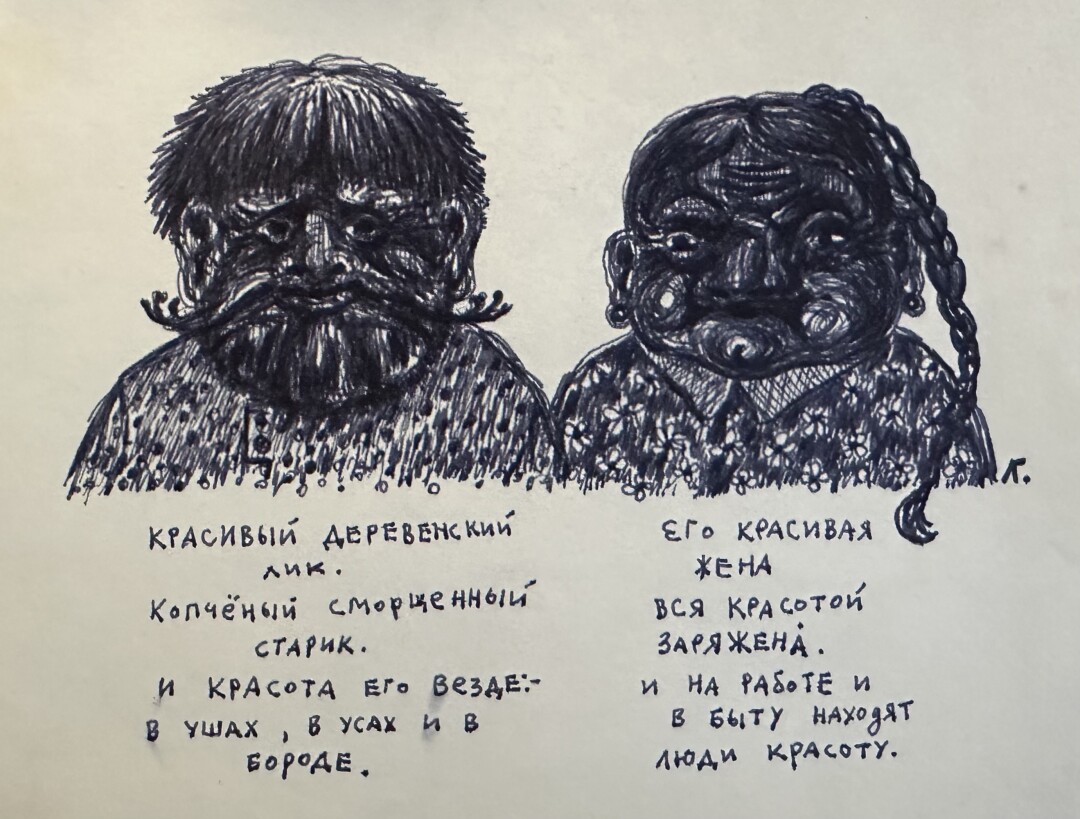 КРАСИВЫЙ ДЕРЕВЕНСКИЙ
ЛИК.
КОПЧЁНЫЙ СМОРЩЕННЫЙ
СТАРИК.
И КРАСОТА ЕГО ВЕЗДЕ:-
В УШАХ, В УСАХ И В
БОРОДЕ.
ЕГО КРАСИВАЯ
ЖЕНА
ВСЯ КРАСОТОЙ
ЗАРЯЖЕНА.
И НА РАБОТЕ И
В БЫТУ НАХОДЯТ
ЛЮДИ КРАСОТУ.
К.